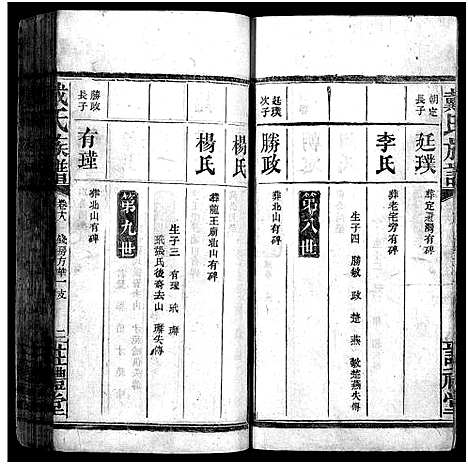 戴氏族譜
朝定
長子
廷璞
葬定
有碑
李氏
葬老宅旁有碑
生子四 勝敏 政 楚 燕 敏楚燕失傳
第八世
廷璞
次子
勝政
葬北山有碑
楊氏
葬龍王廟北山有碑
楊氏
葬北山有碑
生子三 有瑾 玳 璉
玳張氏後裔去山 璉失傳
第九世
勝政
長子
有瑾
葬北山有碑
戴氏族譜
卷十八
房方華一支
二
禮堂